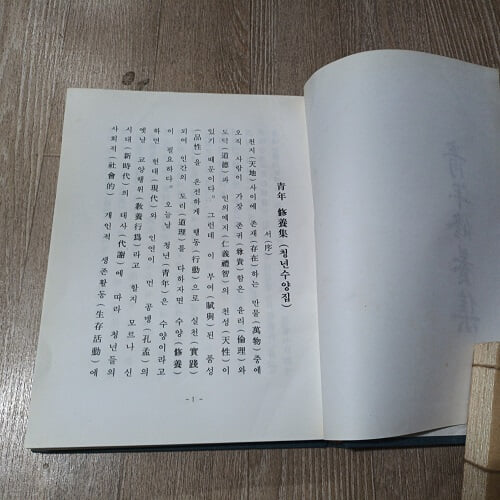 青年 修養集 (청년수양집)
서(序)
천지(天地)사이에 존재(存在)하는 만물(萬物)중에
오직 사람이 가장 존귀(尊貴)함은 윤리(倫理)와
도덕(道德)과 인의예지(仁義禮智)의 천성(天性)이
있기 때문이다. 그런데 이 부여(賦與)된 품성
(品性)을 온전하게 행동(行動)으로 실천(實踐)
되여 인간의 도리(道理)를 다하자면 수양(修養)
이 필요하다. 오늘날 청년(靑年)은 수양이라고
하면 현대(現代)와 인연이 먼 공맹(孔孟)의
옛날 교양행위(敎養行爲)라고 할지 모르나 신
시대(新時代)의 대사(代謝)에 따라 청년들의
사회적(社會的) 개인적 생존활동(生存活動)에
-1-